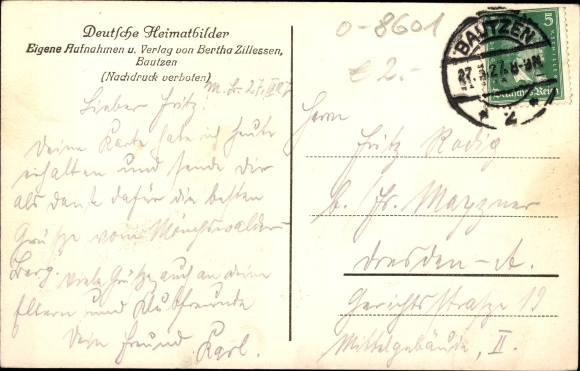 Deutsche Heimatbilder
Eigene Aufnahmen u. Verlag von Bertha Zillessen,
Bautzen
(Nachdruck verboten)
Lieber Fritz!
Deine Karte habe ich heute
erhalten und sende dir
als dank dafür die besten
Grüße vom Mönchswalder-
Berg. Viele Grüße auch an deine
Eltern und Klubfreunde
Dein Freund Karl.
0-8601
€ 2.-
BAUTZEN
27. 8-9N.
* 2 *
5
Deutsches Reich
Herrn
Fritz Rodig
b. Fr. Mayzner
Dresden-A.
Gerichtsstraße 19
Mittelgebäude, II.